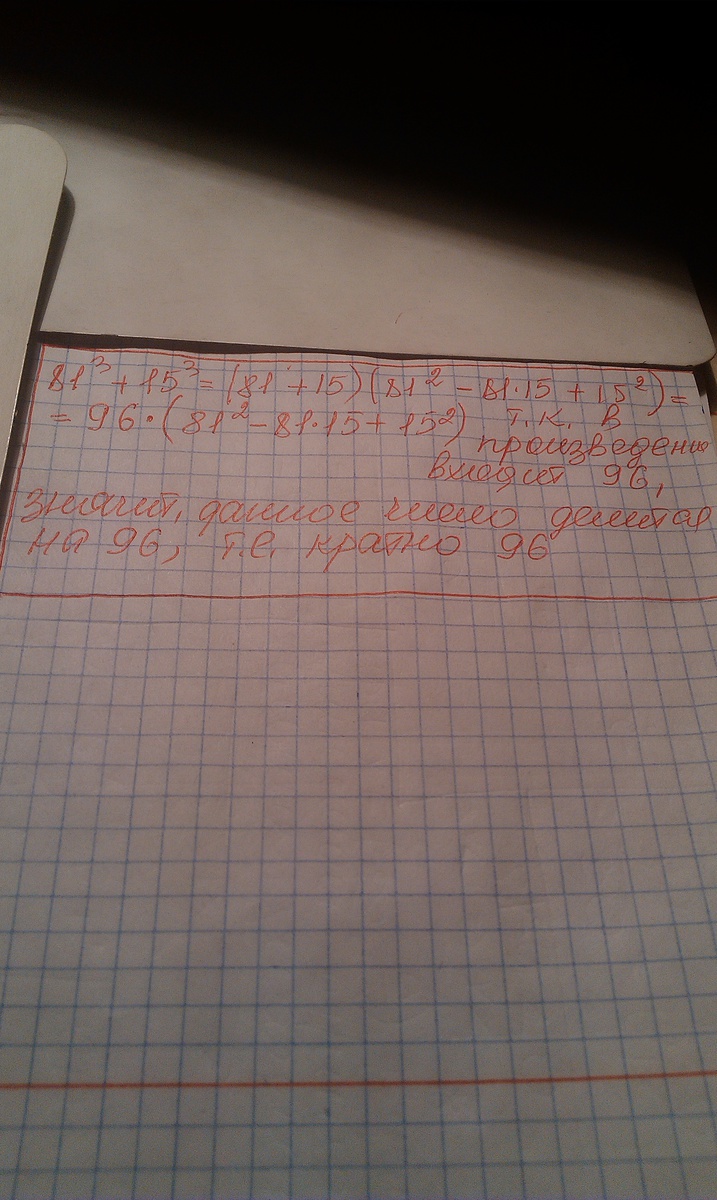 81³ + 15³ = (81 + 15)(81² - 81·15 + 15²) =
= 96·(81² - 81·15 + 15²) т.к. в
произведение
входит 96,
значит, данное число делится
на 96, т.е. кратно 96